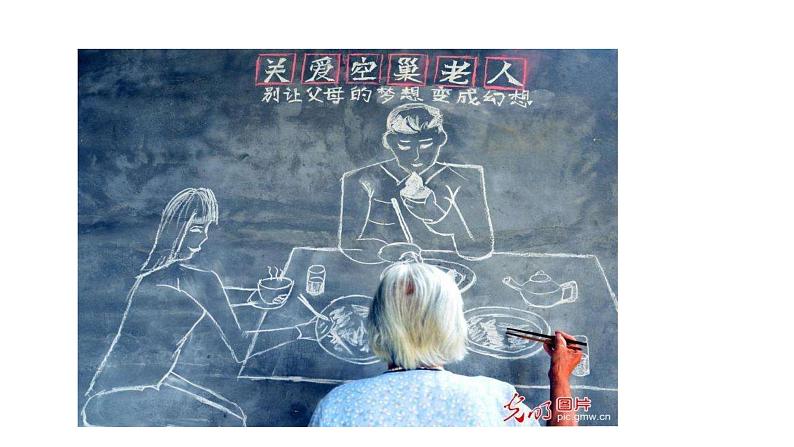 关爱空巢老人
别让父母的梦想变成幻想
光明图片
pic.gmw.cn